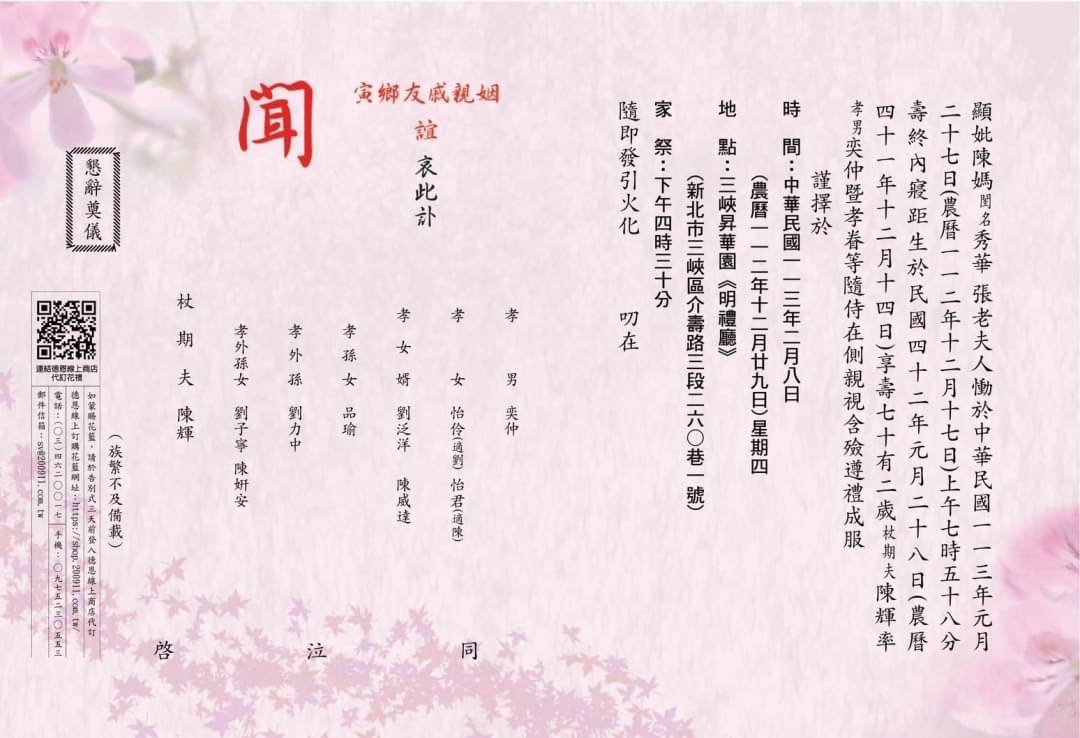 顯妣陳媽閨名秀華 張老夫人慟於中華民國一一三年元月
二十七日(農曆一一二年十二月十七日)上午七時五十八分
壽終內寢距生於民國四十二年元月二十八日(農曆
四十一年十二月十四日)享壽七十有二歲杖期夫陳輝率
孝男奕仲暨孝眷等隨侍在側親視含殮遵禮成服
謹擇於
時 間：中華民國一一三年二月八日
(農曆一一二年十二月廿九日)星期四
地 點：三峽昇華園《明禮廳》
(新北市三峽區介壽路三段二六〇巷一號)
家 祭：下午四時三十分
隨即發引火化 叨在
姻親戚友鄉寅
誼
哀此訃
聞
孝 男 奕仲
孝 女 怡伶(適劉) 怡君(適陳)
孝 女 婿 劉泛洋 陳威達
孝 孫 女 品瑜
孝 外 孫 劉力中
孝外孫女 劉子寧 陳姸安
杖 期 夫 陳輝
同 泣 啓
(族繁不及備載)
懇辭奠儀
連結德恩線上商店
代訂花禮
如蒙賜花籃，請於告別式三天前登入德恩線上商店代訂
德恩線上訂購花籃網址：https://shop.200911.com.tw/
電話：(〇三)四六二〇〇一七 手機：〇九七五二三〇五五三
郵件信箱：sv@200911.com.tw